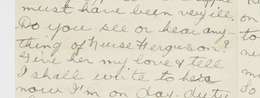 must have been very ill,
Do you see or hear any-
thing of Nurse Ferguson?
Give her my love & tell
I shall write to her
now I'm on day-duty
on
to